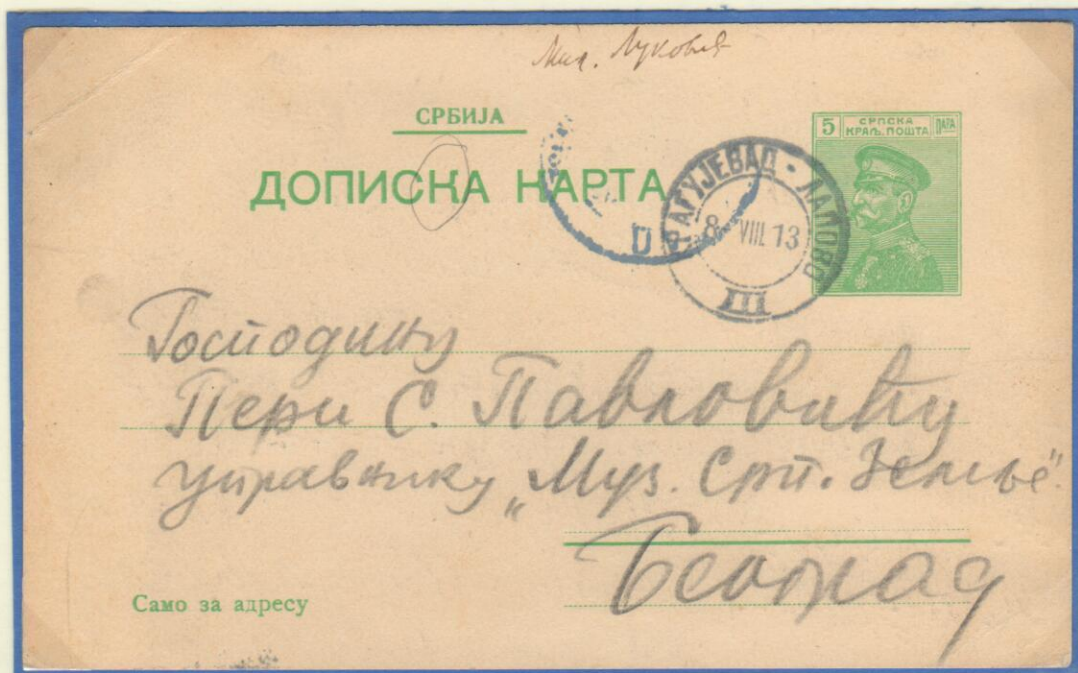 Мил. Луковић
СРБИЈА
ДОПИСНА КАРТА
5 СРПСКА ПАРА
КРАЉ. ПОШТА
КРАГУЈЕВАЦ - ЛАПОВО
8 VIII 13
III
Господину
Пери С. Павловићу
управнику „Муз. Срп. Земље“
Београд
Само за адресу